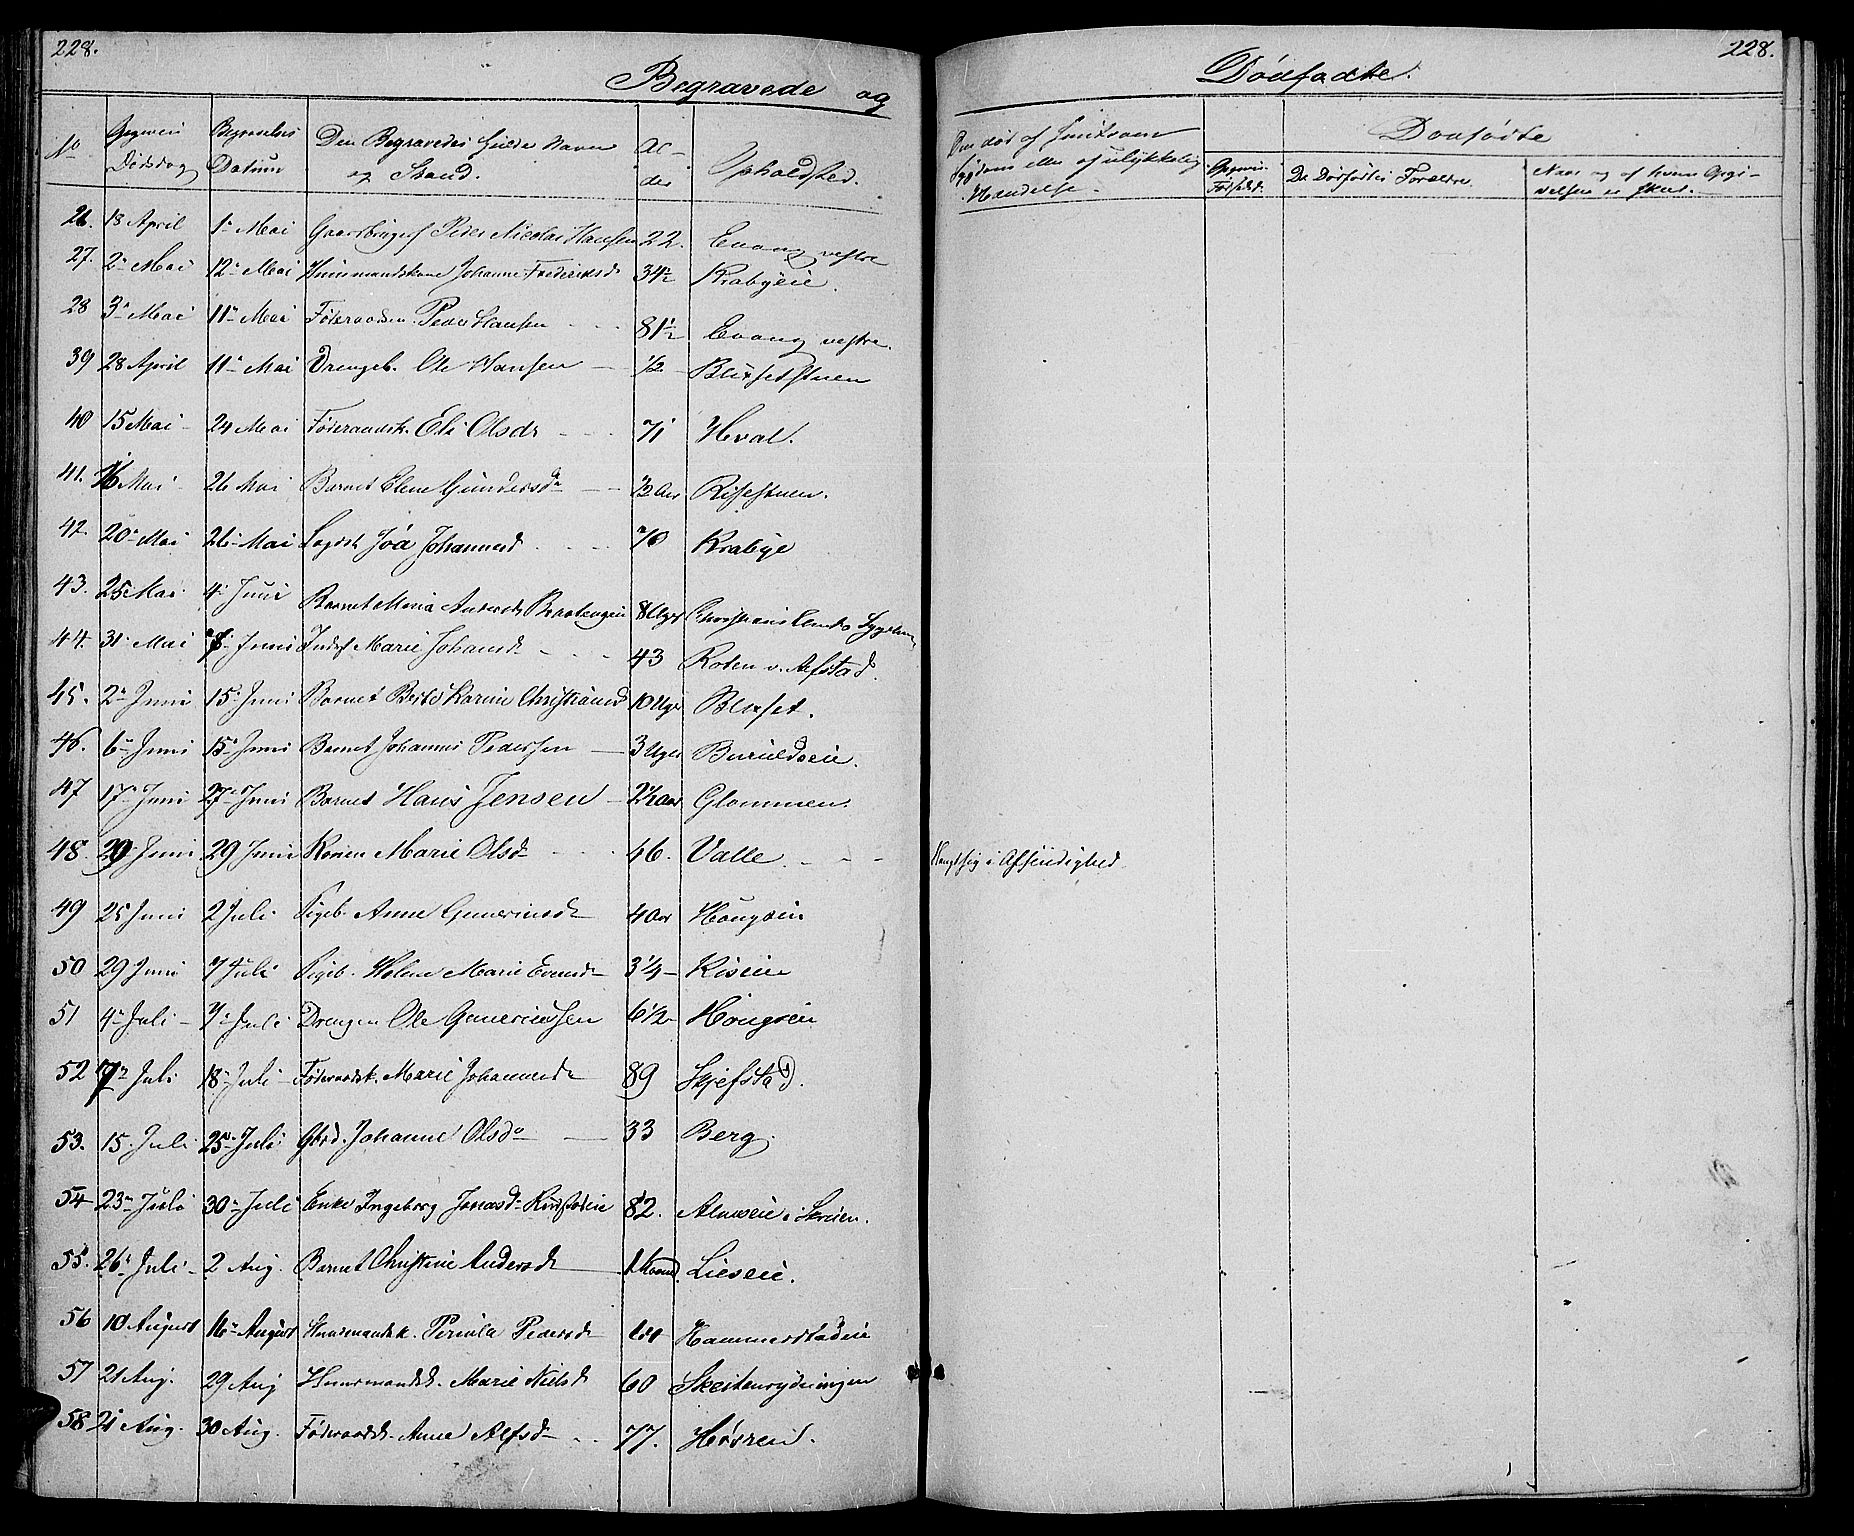 228.
Begravede og
No
Opgiven Dødsdag
Begravelses Datum
Den Begravedes fulde Navn og Stand.
Al-der
Opholdsted.
26. 18 April 1n Mai Peder Nicolai Hansen 22. Evang vestre
27. 2n Mai 12n Mai Huusmandskone Johanne Frederiksd 34½ Krabyeie.
28 3n Mai 11n Mai Føderaadsm. Peder Hansen 81½ Evang vestre.
39 28 April 11n Mai Drengeb. Ole Hansen ½ Blixetstuen
40 15 Mai 24 Mai Føderaadsk. Eli Olsdr 71 Hval.
41. 16 Mai 26 Mai Barnet Elene Gundersdr ½ Aar Risestuen.
42. 20n Mai 26n Mai Lægdsk. Johannesd 70 Krabye
43. 25 Mai 4n Juni Barnet Maria Andersdr Braatengeie 8 Uger
44. 31 Mai 7n Juni Inders Marie Johansd 43 Roten v. Alfstad.
45. 2n Juni 15n Juni Barnet Berte Karine Christiansd 10 Uger Blixet.
46. 6n Juni 15n Juni Barnet Johannes Pedersen 3 Uger Buruldseie.
47 17n Juni 27n Juni Barnet Hans Jensen 2½ Aar Glommen.
48. 20 Juni 29 Juni Karen Marie Olsdr 46. Valle
49 25 Juni 2 Juli Pigeb. Anne Guneriusd 4 Aar Hougseie
50 29 Juni 7 Juli Pigeb. Helene Marie Evensdr 3¼ Riseeie
51 4n Juli 7n Juli Drengen Ole Guneriussen 6½ Hougseie
52 7n Juli 18n Juli Føderaadsk. Marie Johannesdr 89 Skjefstad.
53. 15. Juli 25n Juli Gbrd. Johanne Olsdr 33 Berg.
54 23n Juli 30n Juli Enke Ingeborg Jonasdr 82. Alm i Skreien.
55. 26n Juli 2 Aug. Barnet Christine Andersdr Lieseie.
56 10 August 16n August Huusmandsk. Pernila Pedersdr Hammerstadeie
57 21 Aug. 29 Aug Huusmandsk. Marie Nielsdr 60 Skeitenrydningen
58 21 Aug. 30 Aug. Føderaadsk. Anne Alfsdr 77. Høvren.
228.
Dødfødte.
Den død af Smitsom Sygdom eller af ulykkelig Hændelse.
Dødfødte
Opgiven Fødselsd.
De Dødfødtes Forældre
Naar og af hvem Opgivelsen er skeet.
Hængt sig i Afsindighed.